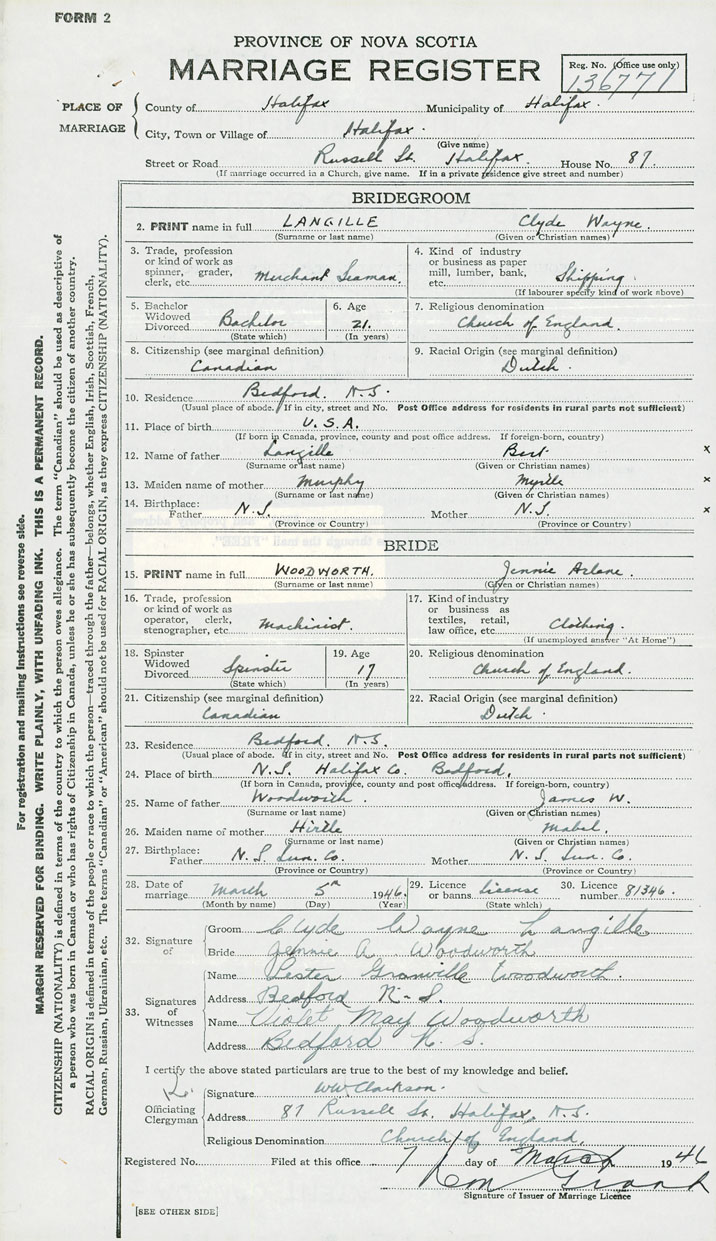 FORM 2
PROVINCE OF NOVA SCOTIA
MARRIAGE REGISTER
Reg. No. (Office use only)
136771
PLACE OF MARRIAGE
County of Halifax Municipality of Halifax.
City, Town or Village of Halifax.
(Give name)
Street or Road Russell St. Halifax. House No. 87.
(If marriage occurred in a Church, give name. If in a private residence give street and number)
BRIDEGROOM
2. PRINT name in full LANGILLE Clyde Wayne.
(Surname or last name) (Given or Christian names)
3. Trade, profession or kind of work as spinner, grader, clerk, etc. Merchant Seaman.
4. Kind of industry or business as paper mill, lumber, bank, etc. Shipping
(If labourer specify kind of work above)
5. Bachelor Widowed Divorced Bachelor
(State which)
6. Age 21.
(In years)
7. Religious denomination
Church of England.
8. Citizenship (see marginal definition)
Canadian
9. Racial Origin (see marginal definition)
Dutch.
10. Residence Bedford. N.S.
(Usual place of abode. If in city, street and No. Post Office address for residents in rural parts not sufficient)
11. Place of birth U.S.A.
(If born in Canada, province, county and post office address. If foreign-born, country)
12. Name of father Langille Bert. x
(Surname or last name) (Given or Christian names)
13. Maiden name of mother Murphy Myrtle x
(Surname or last name) (Given or Christian names)
14. Birthplace:
Father N.S. Mother N.S. x
(Province or Country) (Province or Country)
BRIDE
15. PRINT name in full WOODWORTH. Jennie Arlane.
(Surname or last name) (Given or Christian names)
16. Trade, profession or kind of work as operator, clerk, stenographer, etc. Machinist.
17. Kind of industry or business as textiles, retail, law office, etc. Clothing.
(If unemployed answer "At Home")
18. Spinster Widowed Divorced Spinster
(State which)
19. Age 17
(In years)
20. Religious denomination
Church of England.
21. Citizenship (see marginal definition)
Canadian
22. Racial Origin (see marginal definition)
Dutch.
23. Residence Bedford. N.S.
(Usual place of abode. If in city, street and No. Post Office address for residents in rural parts not sufficient)
24. Place of birth N.S. Halifax Co. Bedford.
(If born in Canada, province, county and post office address. If foreign-born, country)
25. Name of father Woodworth. James W.
(Surname or last name) (Given or Christian names)
26. Maiden name of mother Hirtle Mabel.
(Surname or last name) (Given or Christian names)
27. Birthplace:
Father N.S. Lun. Co. Mother N.S. Lun. Co.
(Province or Country) (Province or Country)
28. Date of marriage March 5th 1946.
(Month by name) (Day) (Year)
29. Licence or banns License
(State which)
30. Licence number 81346.
32. Signature of
Groom Clyde Wayne Langille
Bride Jennie A. Woodworth
33. Signatures of Witnesses
Name Lester Granville Woodworth.
Address Bedford N-S.
Name Violet May Woodworth
Address Bedford N. S.
I certify the above stated particulars are true to the best of my knowledge and belief.
Officiating Clergyman
Signature WW Clarkson.
Address 87 Russell St. Halifax, N.S.
Religious Denomination Church of England.
Registered No. Filed at this office 7 day of March 1946
Signature of Issuer of Marriage Licence
[SEE OTHER SIDE]
For registration and mailing instructions see reverse side.
MARGIN RESERVED FOR BINDING. WRITE PLAINLY, WITH UNFADING INK. THIS IS A PERMANENT RECORD.
CITIZENSHIP (NATIONALITY) is defined in terms of the country to which the person owes allegiance. The term "Canadian" should be used as descriptive of
a person who was born in Canada or who has rights of Citizenship in Canada, unless he or she has subsequently become the citizen of another country.
RACIAL ORIGIN is defined in terms of the people or race to which the person—traced through the father—belongs, whether English, Irish, Scottish, French,
German, Russian, Ukrainian, etc. The terms "Canadian" or "American" should not be used for RACIAL ORIGIN, as they express CITIZENSHIP (NATIONALITY).